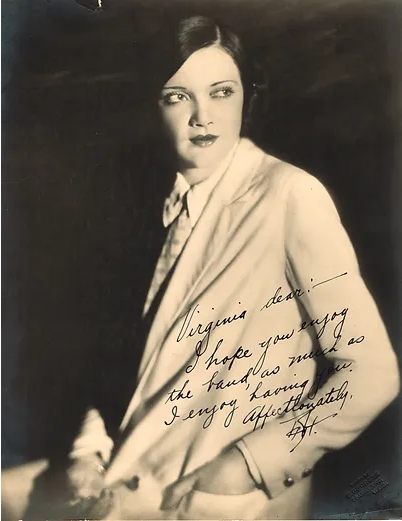 Virginia dear:—
I hope you enjoy
the band, as much as
I enjoy having you.
Affectionately,